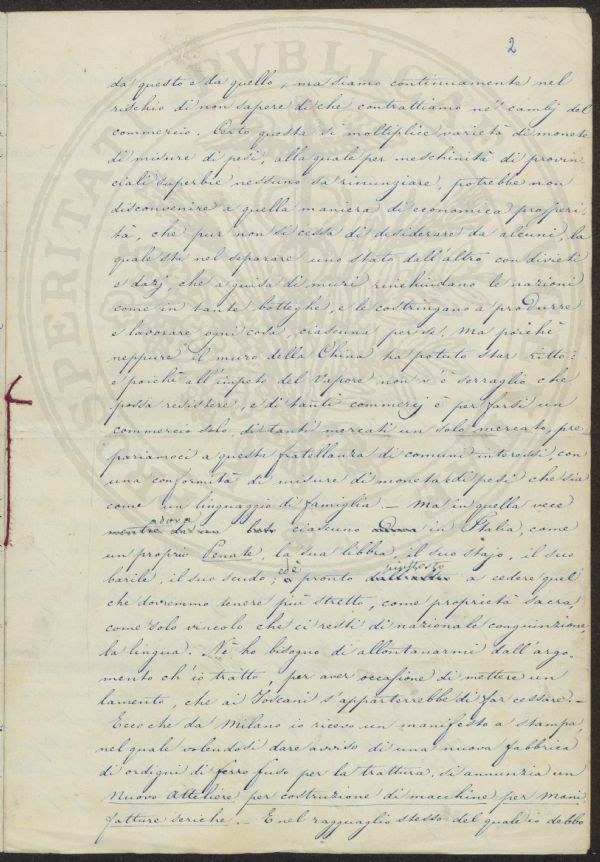 2
da questo e da quello, ma siamo continuamente nel
rischio di non sapere di che contrattiamo ne' cambj del
commercio. Certo questa sì moltiplice varietà di monete
di misure di pesi, alla quale per meschinità di provin-
ciali superbie nessuno sa rinunziare, potrebbe non
disconvenire a quella maniera di economica prosperi-
tà, che pur non si cessa di desiderare da alcuni, la
quale sta nel separare uno stato dall'altro con divieti
e dazj, che a guisa di muri rinchiudano le nazioni
come in tante botteghe, e le costringano a produrre
e lavorare ogni cosa, ciascuna per se. Ma poichè
neppure il muro della China ha potuto star ritto;
e poichè all'impeto del vapore non v'è serraglio che
possa resistere, e di tanti commerzj è per farsi un
commercio solo, di tanti mercati un solo mercato, pre
pariamoci a questa fratellanza di comuni interessi, con
una conformità di misure di moneta di pesi che sia
come un linguaggio di famiglia. — Ma in quella vece
adora
ciascuno in Italia, come
un proprio Penate, la sua libbra, il suo stajo, il suo
ed è piuttosto
barile, il suo scudo; pronto a cedere quel
che dovremmo tenere più stretto, come proprietà sacra,
come solo vincolo che ci resti di nazionale congiunzione,
la lingua. Nè ho bisogno di allontanarmi dall'argo-
mento ch'io tratto, per aver occasione di mettere un
lamento, che ai Toscani s'apparterrebbe di far cessare. —
Ecco che da Milano io ricevo un manifesto a stampa,
nel quale volendosi dare avviso di una nuova fabbrica
di ordigni di ferro fuso per la trattura, si annunzia un
Nuovo Atteliere per costruzione di macchine per mani
fatture seriche. — E nel ragguaglio stesso del quale io debbo
PVBLICA